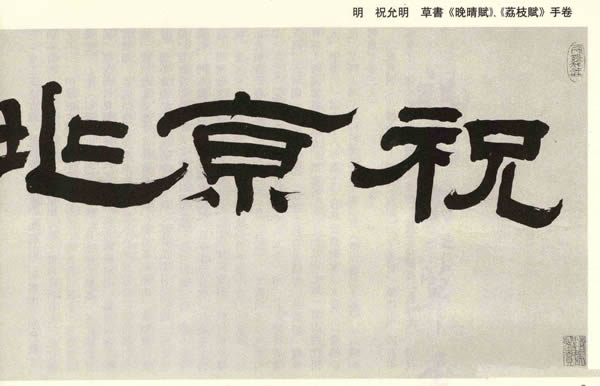 明　祝允明　草書《晚晴賦》、《荔枝賦》手卷
祝亰兆